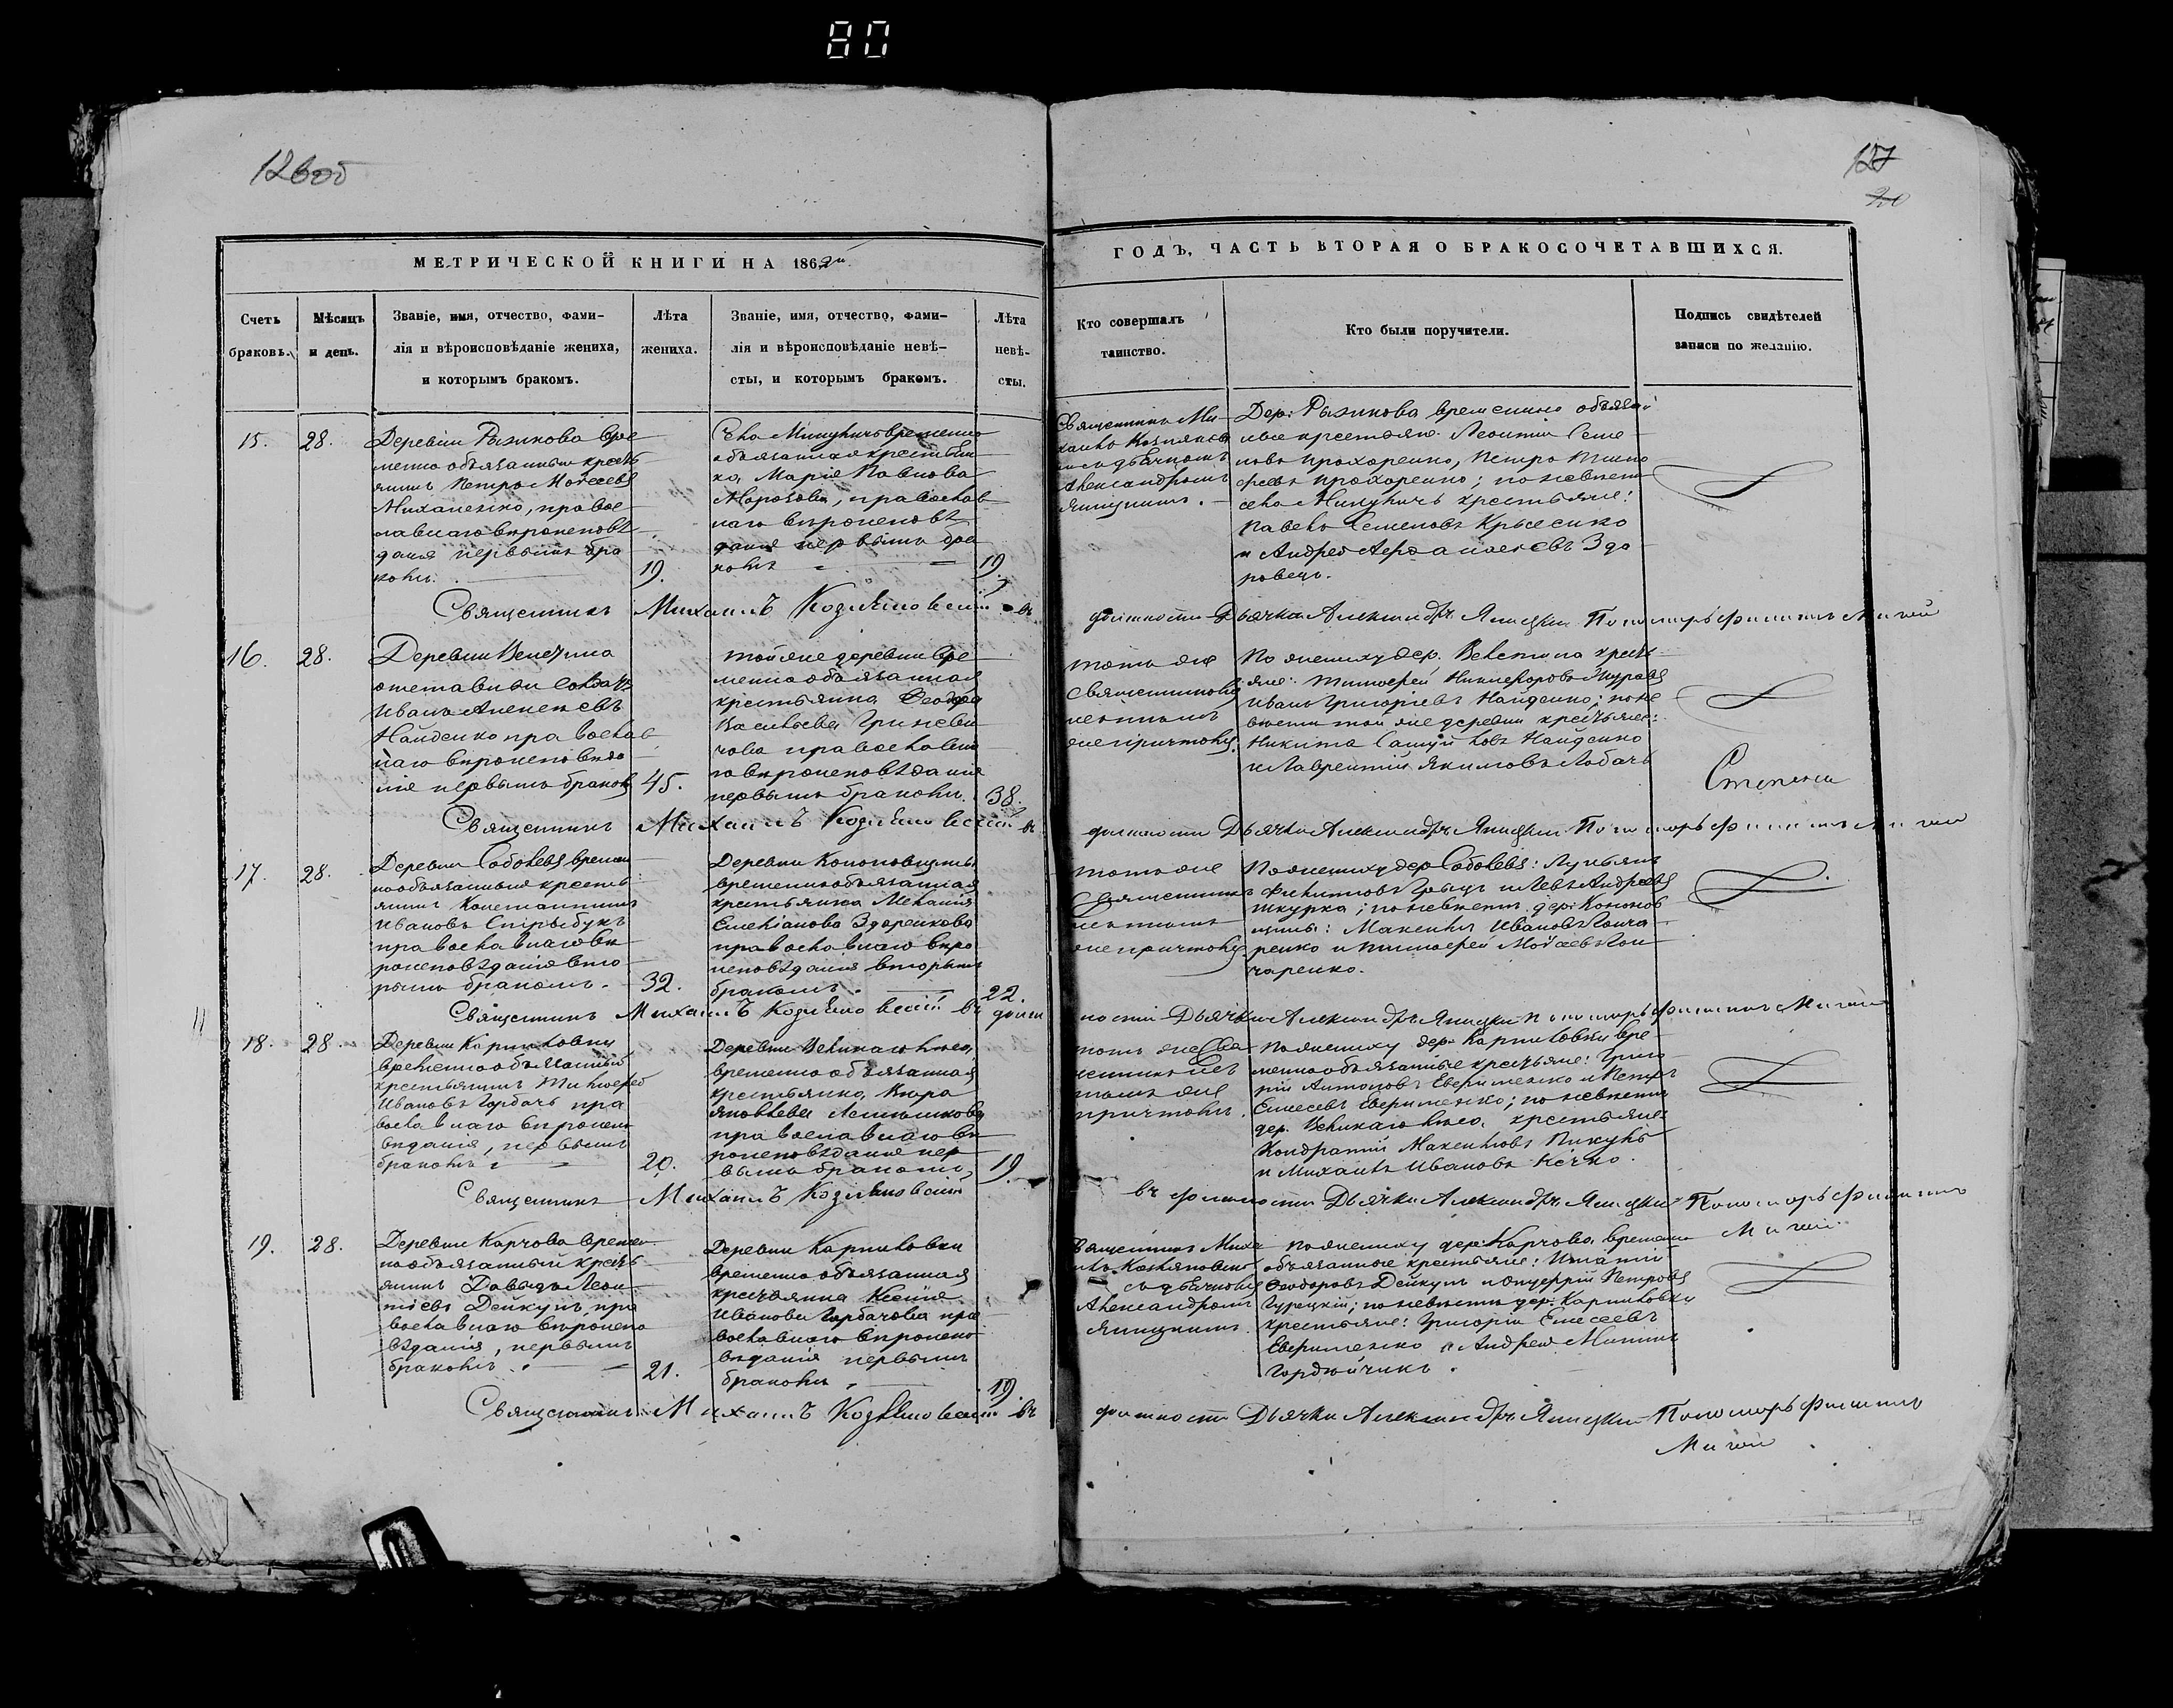 80
126об
127
20
МЕТРИЧЕСКОЙ КНИГИ НА 1862й
ГОДЪ, ЧАСТЬ ВТОРАЯ О БРАКОСОЧЕТАВШИХСЯ.
Счетъ
браковъ.
Мѣсяцъ
и день.
Званіе, имя, отчество, фами-
лія и вѣроисповѣданіе жениха,
и которымъ бракомъ.
Лѣта
жениха.
Званіе, имя, отчество, фами-
лія и вѣроисповѣданіе невѣ-
сты, и которымъ бракомъ.
Лѣта
невѣ-
сты.
Кто совершалъ
таинство.
Кто были поручители.
Подпись свидѣтелей
записи по желанію.
15.
28.
Деревни Рыжикова вре
менно обязанный кресть
янинъ Петръ Моѵсеевъ
Михаленко, право
славнаго вѣроисповѣ
данія первымъ бра
комъ.
19.
Села Микуличъ временно
обязанная крестьян
ка, Марія Павлова
Морозова, православ
наго вѣроисповѣ
данія первымъ бра
комъ
19.
Священникъ Ми
хаилъ
съ дьячкомъ
Александромъ
Яницкимъ.
Дер. Рыжикова временно обязан
ные крестьяне Леонтій Семе
новъ Прохоренко, Петръ Тимо
феевъ Прохоренко; по невѣстѣ
села Микуличъ крестьяне:
Павелъ Семеновъ
и Андрей Здо
ровецъ.
Священникъ Михаилъ въ должности Дьячка Александръ Яницкій Пономарь Филиппъ Мигай
16.
28.
Деревни Велетина
отставный солдатъ
Иванъ Алексѣевъ
Найденко православ
наго вѣроисповѣда
нія первымъ бракомъ
45.
той же деревни вре
менно обязанная
крестьянка Феодора
Васильева Гриневи
чова православна
го вѣроисповѣданія
первымъ бракомъ.
38.
тотъ же
Священникъ
съ тѣмъ
же причтомъ.
По жениху дер. Велетина кресть
яне: Тимофей Никифоровъ Журавл
Иванъ Григоріевъ Найденко; по не
вѣстѣ той же деревни крестьяне:
Никита Самуйловъ Найденко
и Лаврентій Якимовъ Лобачъ
Священникъ Михаилъ въ должности Дьячка Александръ Яницкій Пономарь Филиппъ Мигай
17.
28.
Деревни Соболевъ времен
нообязанный кресть
янинъ Константинъ
Ивановъ
православнаго вѣ
роисповѣданія вто
рымъ бракомъ.
32.
Деревни Кононовщины
временнообязанная
крестьянка Меланія
Емельянова Здоренкова
православнаго вѣро
исповѣданія вторымъ
бракомъ.
22.
тотъ же
Священникъ
съ тѣмъ
же причтомъ.
По жениху дер. Соболевъ: Лукьянъ
Филиповъ и Левъ Андреевъ
Шкурка; по невѣстѣ дер. Кононов
щины: Максимъ Ивановъ Гонча
ренко и Тимофей Гон
чаренко.
Священникъ Михаилъ въ должности Дьячка Александръ Яницкій Пономарь Филиппъ Мигай
18.
28.
Деревни Карпиловки
временнообязанный
крестьянинъ Тимофей
Ивановъ Горбачъ пра
вославнаго вѣроиспо
вѣданія, первымъ
бракомъ
20.
Деревни
временно обязанная
крестьянка, Кира
Яковлева
православнаго вѣ
роисповѣданія пер
вымъ бракомъ,
19.
тотъ же Свя
щенникъ съ
тѣмъ же
причтомъ.
По жениху дер. Карпиловки вре
меннообязанные крестьяне: Григо
рій Антоновъ и Петръ
Елисеевъ по невѣстѣ
дер. крестьяне
Кондратій Максимовъ Пикулъ
и Михаилъ Ивановъ
Священникъ Михаилъ
въ должности Дьячка Александръ Яницкій Пономарь Филиппъ
Мигай
19.
28.
Деревни Карчова времен
нообязанный кресть
янинъ Давыдъ Леон
тіевъ Дейкунъ, пра
вославнаго вѣроиспо
вѣданія, первымъ
бракомъ.
21.
Деревни Карпиловки
временно обязанная
крестьянка Ксенія
Иванова Горбачова пра
вославнаго вѣроиспо
вѣданія первымъ
бракомъ
19.
Священникъ Миха
илъ
съ дьячкомъ
Александромъ
Яницкимъ
По жениху дер. Карчова, временно
обязанные крестьяне: Игнатій
Феодоровъ Дейкунъ и Петровъ
по невѣстѣ дер. Карпиловки
крестьяне: Григорій Елисеевъ
и Андрей
Гордѣйчикъ.
Священникъ Михаилъ въ должности Дьячка Александръ Яницкій Пономарь Филиппъ
Мигай